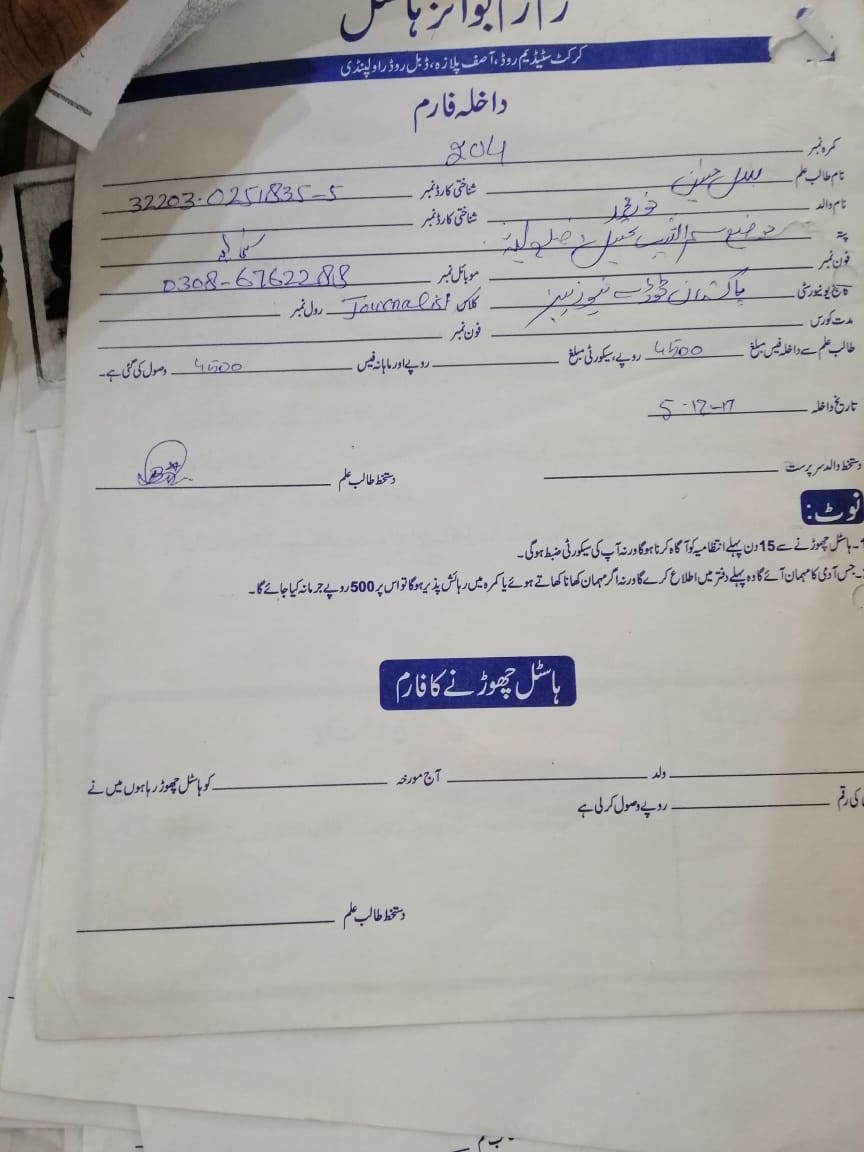 بوائز ہاسٹل
کرکٹ سٹیڈیم روڈ، آصف پلازہ، ڈبل روڈ راولپنڈی
داخلہ فارم
کمرہ نمبر 204
نام طالب علم حسین شناختی کارڈ نمبر 32203-0251835-5
نام والد شناختی کارڈ نمبر
پتہ
فون نمبر موبائل نمبر 0308-6762288
کالج یونیورسٹی پاکستان نیوز کلاس Journalist رول نمبر
مدت کورس فون نمبر
طالب علم سے داخلہ فیس مبلغ 4500 روپے، سیکورٹی مبلغ روپے اور ماہانہ فیس 4500 وصول کی گئی ہے۔
تاریخ داخلہ 5-12-17
دستخط والد سرپرست دستخط طالب علم
نوٹ:
1- ہاسٹل چھوڑنے سے 15 دن پہلے انتظامیہ کو آگاہ کرنا ہوگا ورنہ آپ کی سیکورٹی ضبط ہوگی۔
جس آدمی کا مہمان آئے گا وہ پہلے دفتر میں اطلاع کرے گا ورنہ اگر مہمان کھانا کھاتے ہوئے یا کمرہ میں رہائش پذیر ہوگا تو اس پر 500 روپے جرمانہ کیا جائے گا۔
ہاسٹل چھوڑنے کا فارم
ولد آج مورخہ کو ہاسٹل چھوڑ رہا ہوں میں نے
کی رقم روپے وصول کر لی ہے
دستخط طالب علم